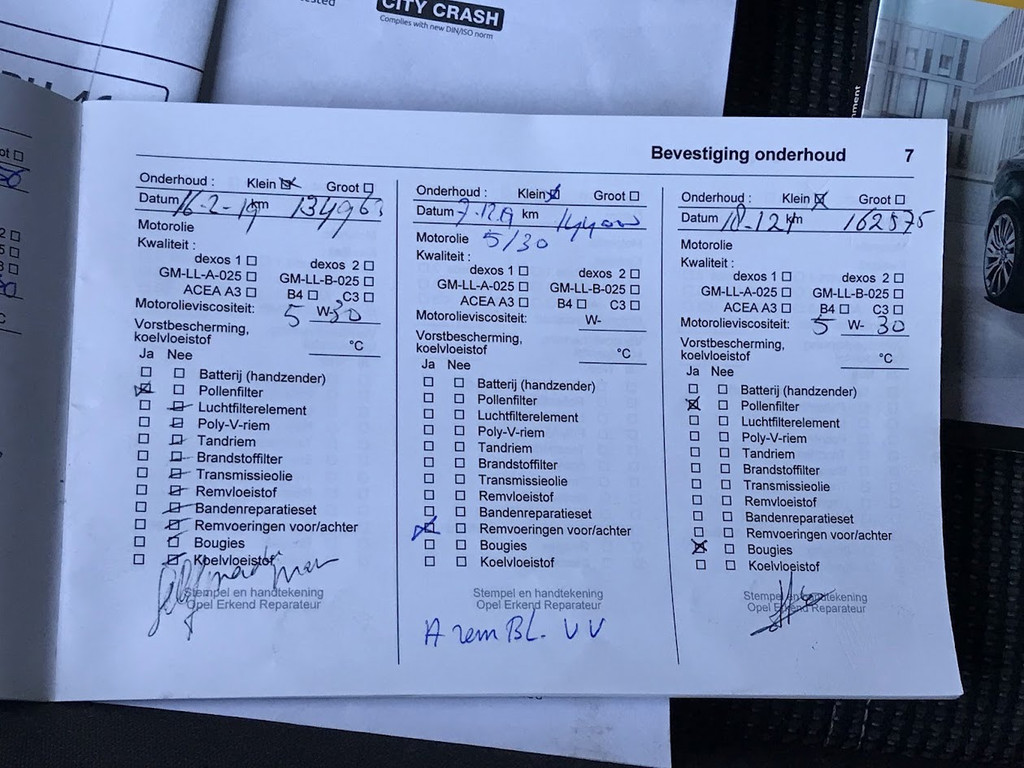 CITY CRASH
Complies with new DIN/ISO norm
Bevestiging onderhoud 7
Onderhoud : Klein Groot
Datum 16-2-19 km 134963
Motorolie
Kwaliteit :
dexos 1 dexos 2
GM-LL-A-025 GM-LL-B-025
ACEA A3 B4 C3
Motorolieviscositeit: 5 W-30
Vorstbescherming,
koelvloeistof °C
Ja Nee
Batterij (handzender)
Pollenfilter
Luchtfilterelement
Poly-V-riem
Tandriem
Brandstoffilter
Transmissieolie
Remvloeistof
Bandenreparatieset
Remvoeringen voor/achter
Bougies
Koelvloeistof
Stempel en handtekening
Opel Erkend Reparateur
Onderhoud : Klein Groot
Datum km
Motorolie 5/30
Kwaliteit :
dexos 1 dexos 2
GM-LL-A-025 GM-LL-B-025
ACEA A3 B4 C3
Motorolieviscositeit: W-
Vorstbescherming,
koelvloeistof °C
Ja Nee
Batterij (handzender)
Pollenfilter
Luchtfilterelement
Poly-V-riem
Tandriem
Brandstoffilter
Transmissieolie
Remvloeistof
Bandenreparatieset
Remvoeringen voor/achter
Bougies
Koelvloeistof
Stempel en handtekening
Opel Erkend Reparateur
A rem BL. VV
Onderhoud : Klein Groot
Datum 18-12 km 162575
Motorolie
Kwaliteit :
dexos 1 dexos 2
GM-LL-A-025 GM-LL-B-025
ACEA A3 B4 C3
Motorolieviscositeit: 5 W- 30
Vorstbescherming,
koelvloeistof °C
Ja Nee
Batterij (handzender)
Pollenfilter
Luchtfilterelement
Poly-V-riem
Tandriem
Brandstoffilter
Transmissieolie
Remvloeistof
Bandenreparatieset
Remvoeringen voor/achter
Bougies
Koelvloeistof
Stempel en handtekening
Opel Erkend Reparateur